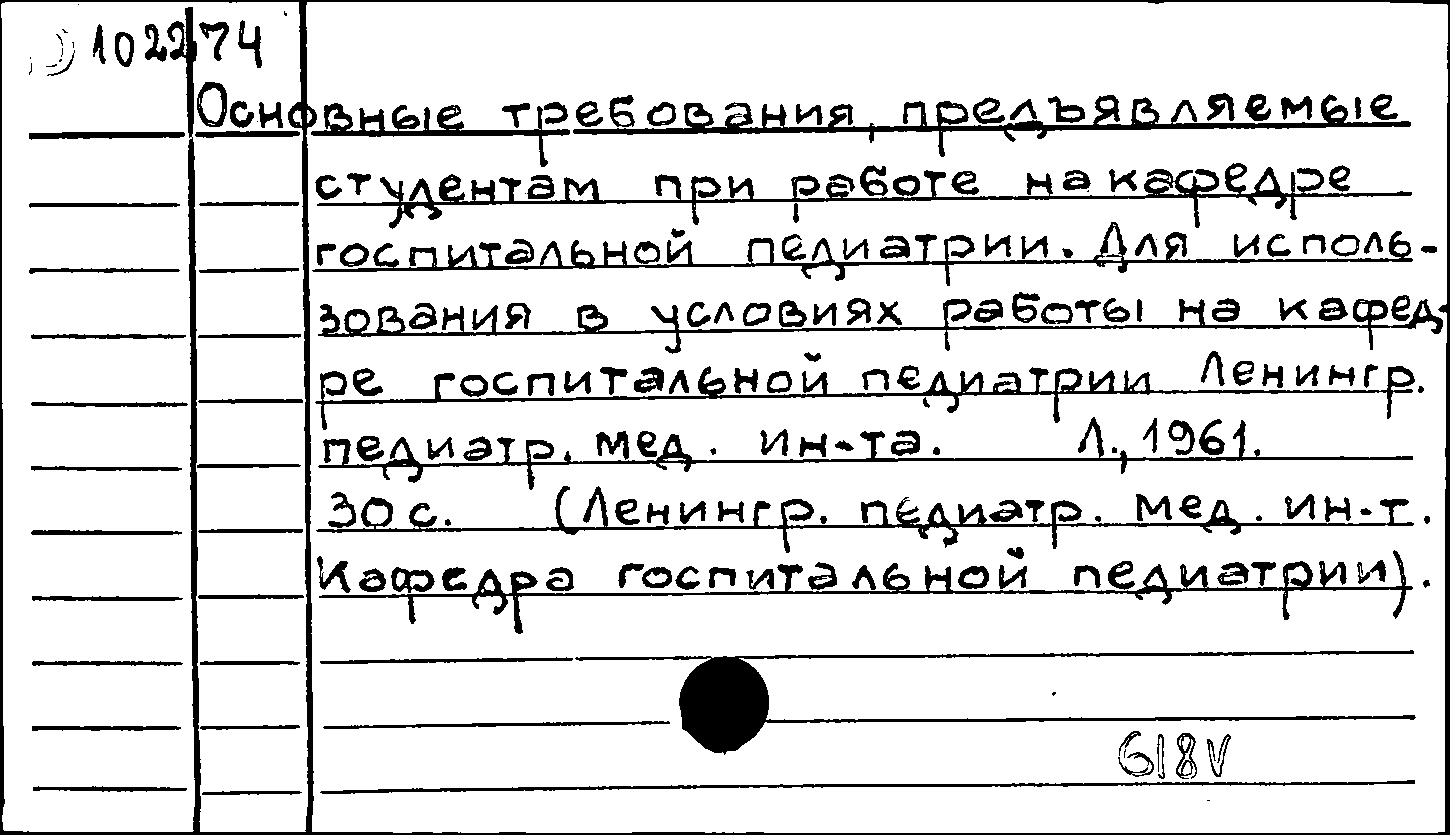 102274
Основные требования, предъявляемые
студентам при работе на кафедре
госпитальной педиатрии. Для исполь-
зования в условиях работы на кафед-
ре госпитальной педиатрии Ленингр.
педиатр. мед. ин-та. Л., 1961.
30 с. (Ленингр. педиатр. мед. ин-т.
Кафедра госпитальной педиатрии).
618V